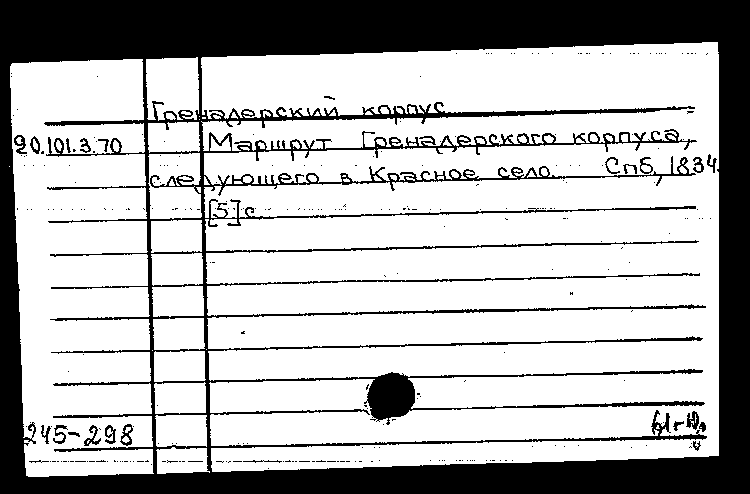 Гренадерский корпус
20.101.3.70 Маршрут Гренадерского корпуса,
следующего в Красное село. Спб, 1834.
[5] с
245-298